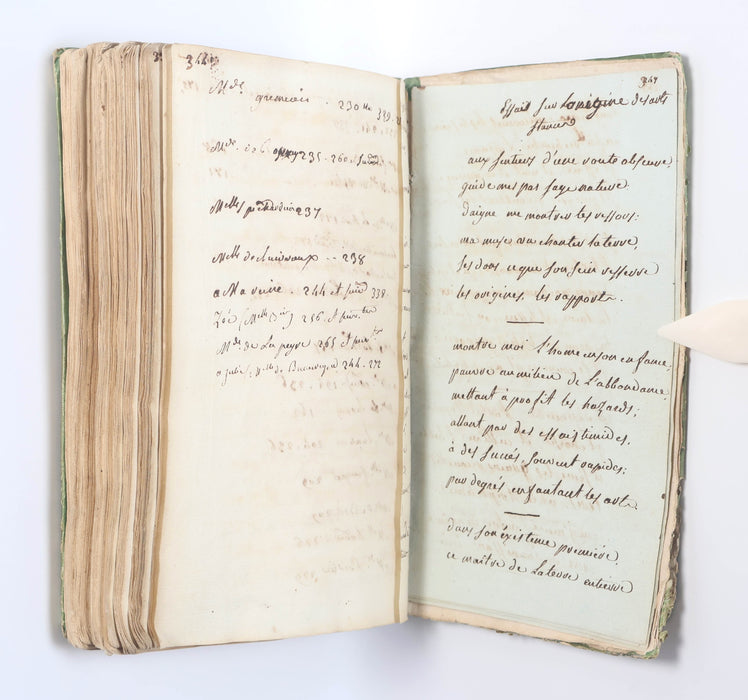 344
Mde gremion . 230 bis 329.
Mde. 235 - 260 et suiv
Melles 237
Melle de -- 238
a Ma voisine . 244 et suiv 338
Zoé (Melle) 256 et suiv.
Mde de La peyre 265 et suiv
a julie, 244. 272
349
Essais sur L'origine des arts
stances
aux sentiers d'une route obscure,
guide mes pas sage nature
daigne me montrer tes ressors:
ma muse va chanter la terre,
ses dons ce que son sein resserre
les origines, les rapports.
montre moi l'homme en son enfance,
pauvre au milieu de L'abbondance,
mettant à profit les hazards;
allant par des essais timides,
à des succés, souvent rapides;
par degrés enfantant les arts.
dans son éxistence premiere,
ce maître de La terre entierre